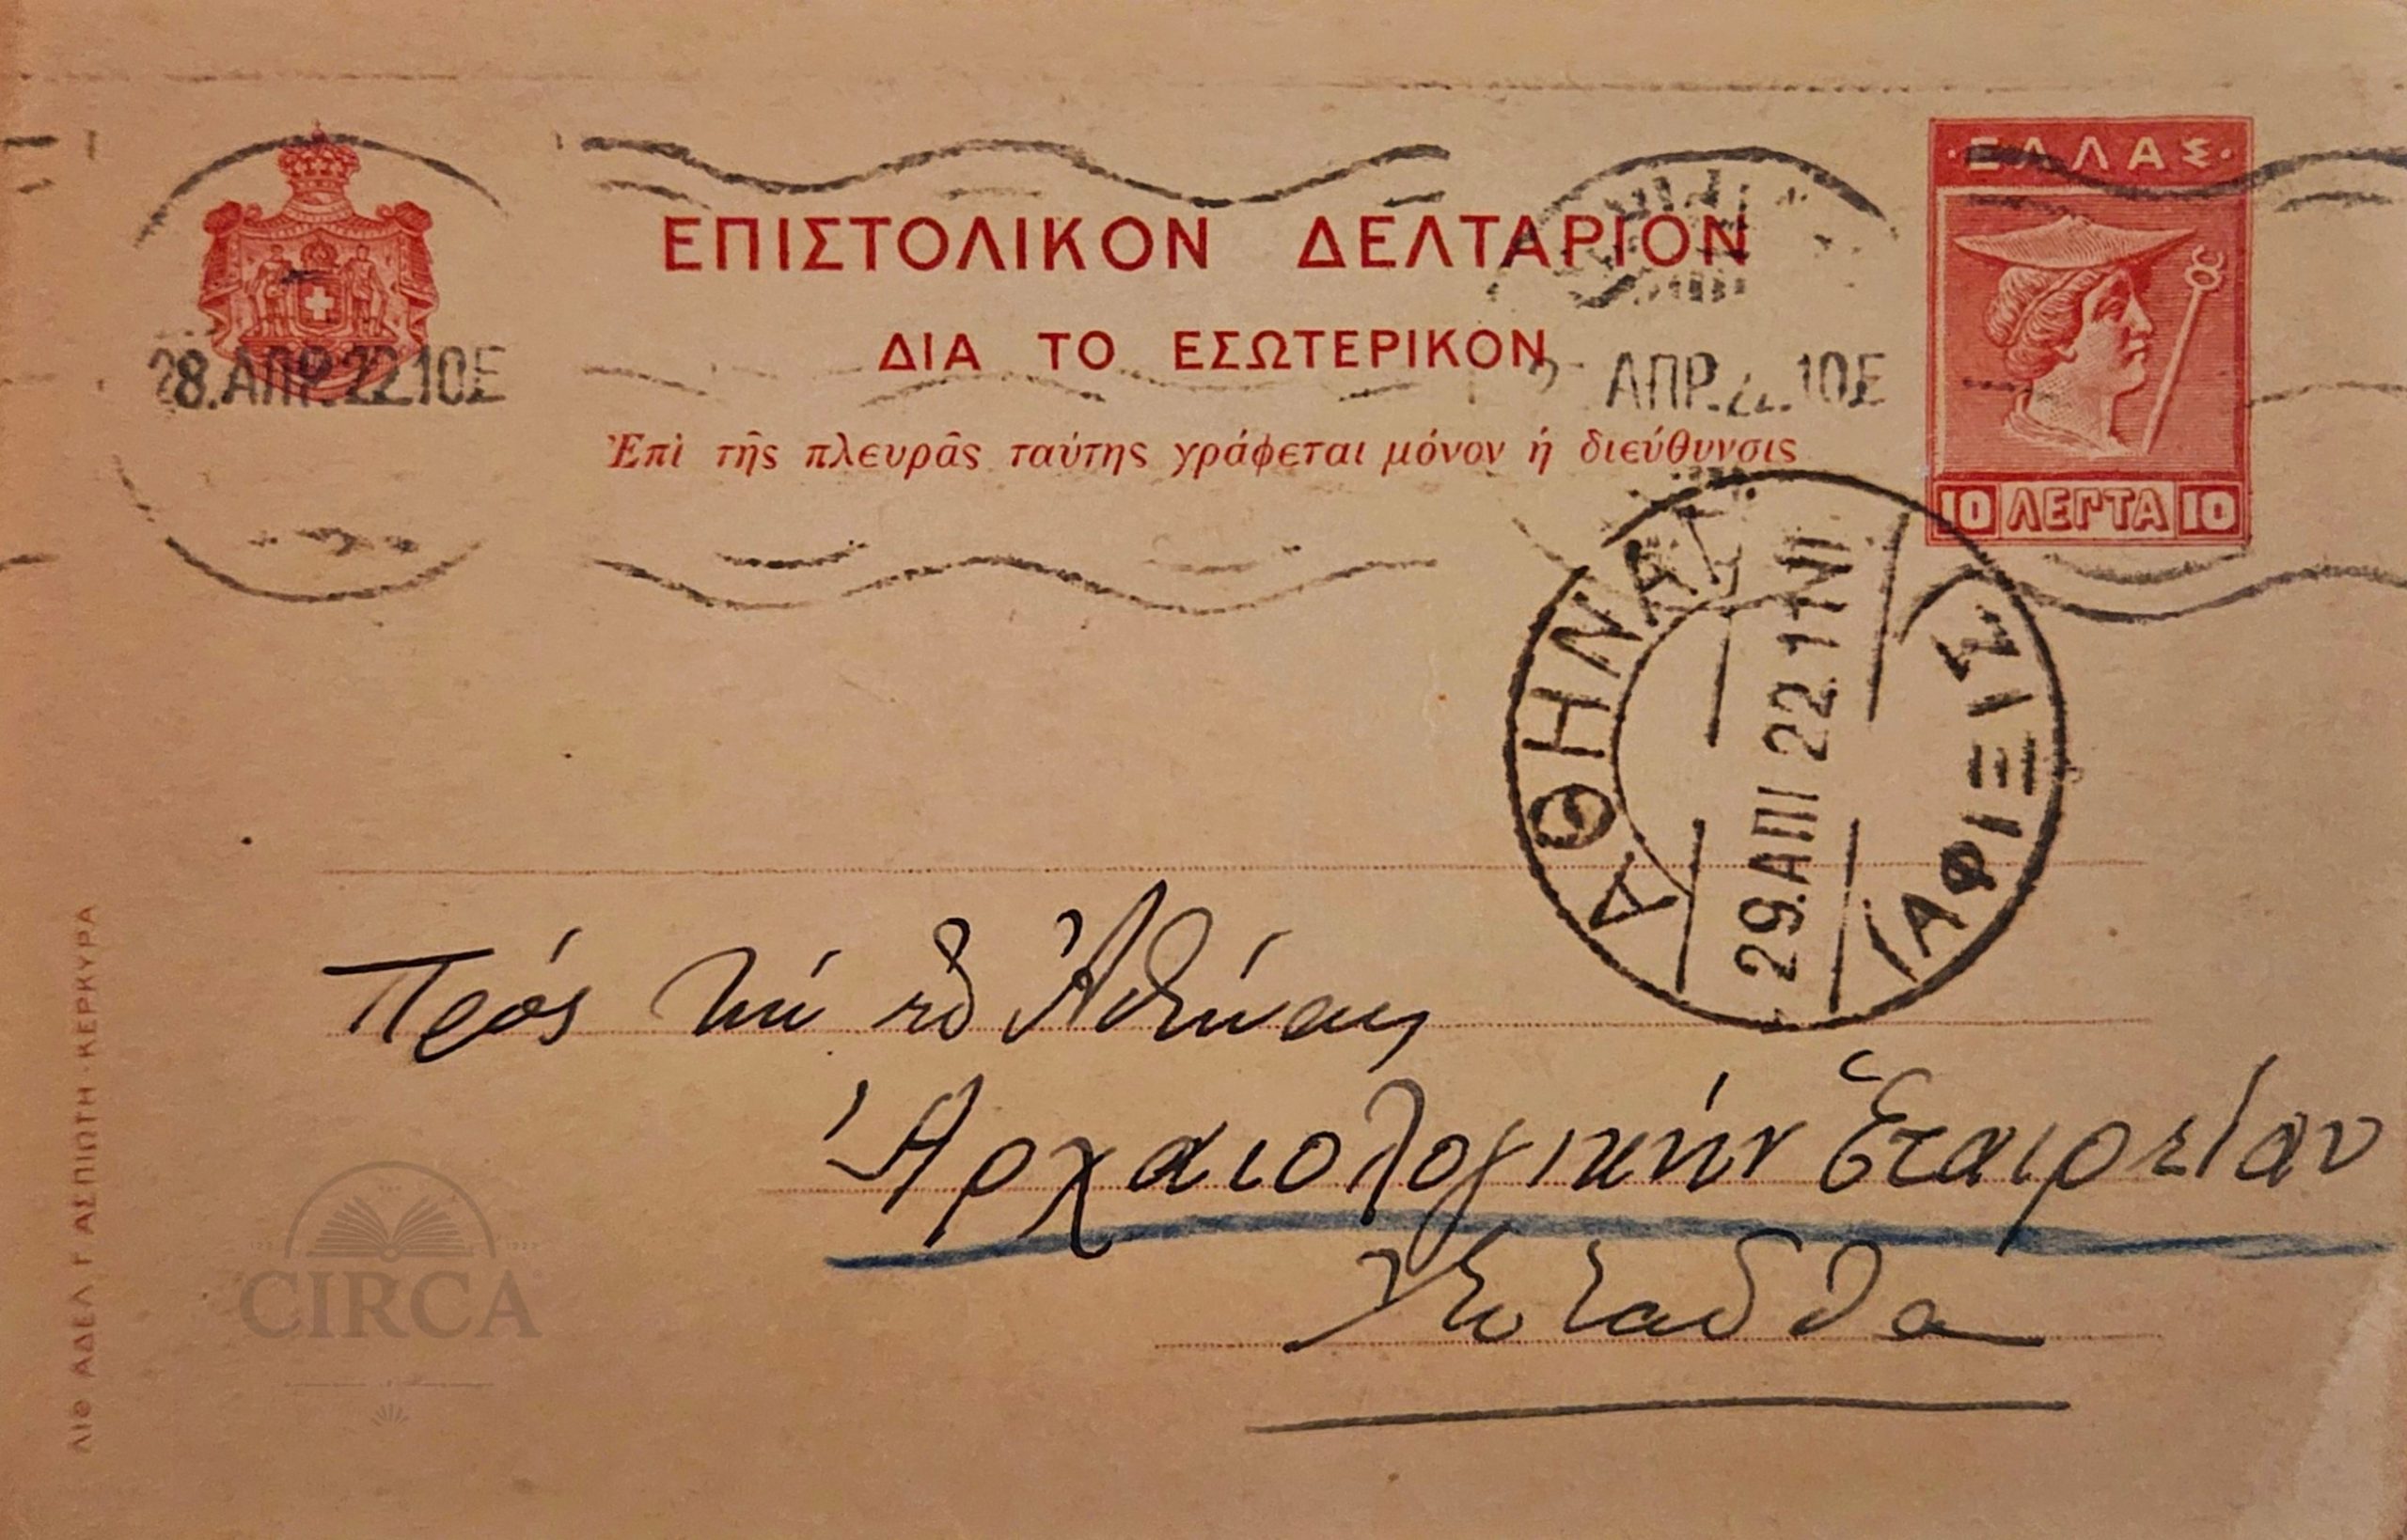 ·ΕΛΛΑΣ·
ΕΠΙΣΤΟΛΙΚΟΝ ΔΕΛΤΑΡΙΟΝ
ΔΙΑ ΤΟ ΕΣΩΤΕΡΙΚΟΝ
28.ΑΠΡ.22.10Σ
ΑΠΡ. 10Σ
Ἐπὶ τῆς πλευρᾶς ταύτης γράφεται μόνον ἡ διεύθυνσις
10 ΛΕΠΤΑ 10
ΑΘΗΝΑΙ
29.ΑΠ 22.11
(ΑΦΙΞΙΣ)
Πρός τήν ἐν Ἀθήναις
Ἀρχαιολογικήν Ἑταιρείαν
Ἐνταῦθα
ΛΙΘ ΑΔΕΛ Γ ΑΣΠΙΩΤΗ·ΚΕΡΚΥΡΑ
CIRCA